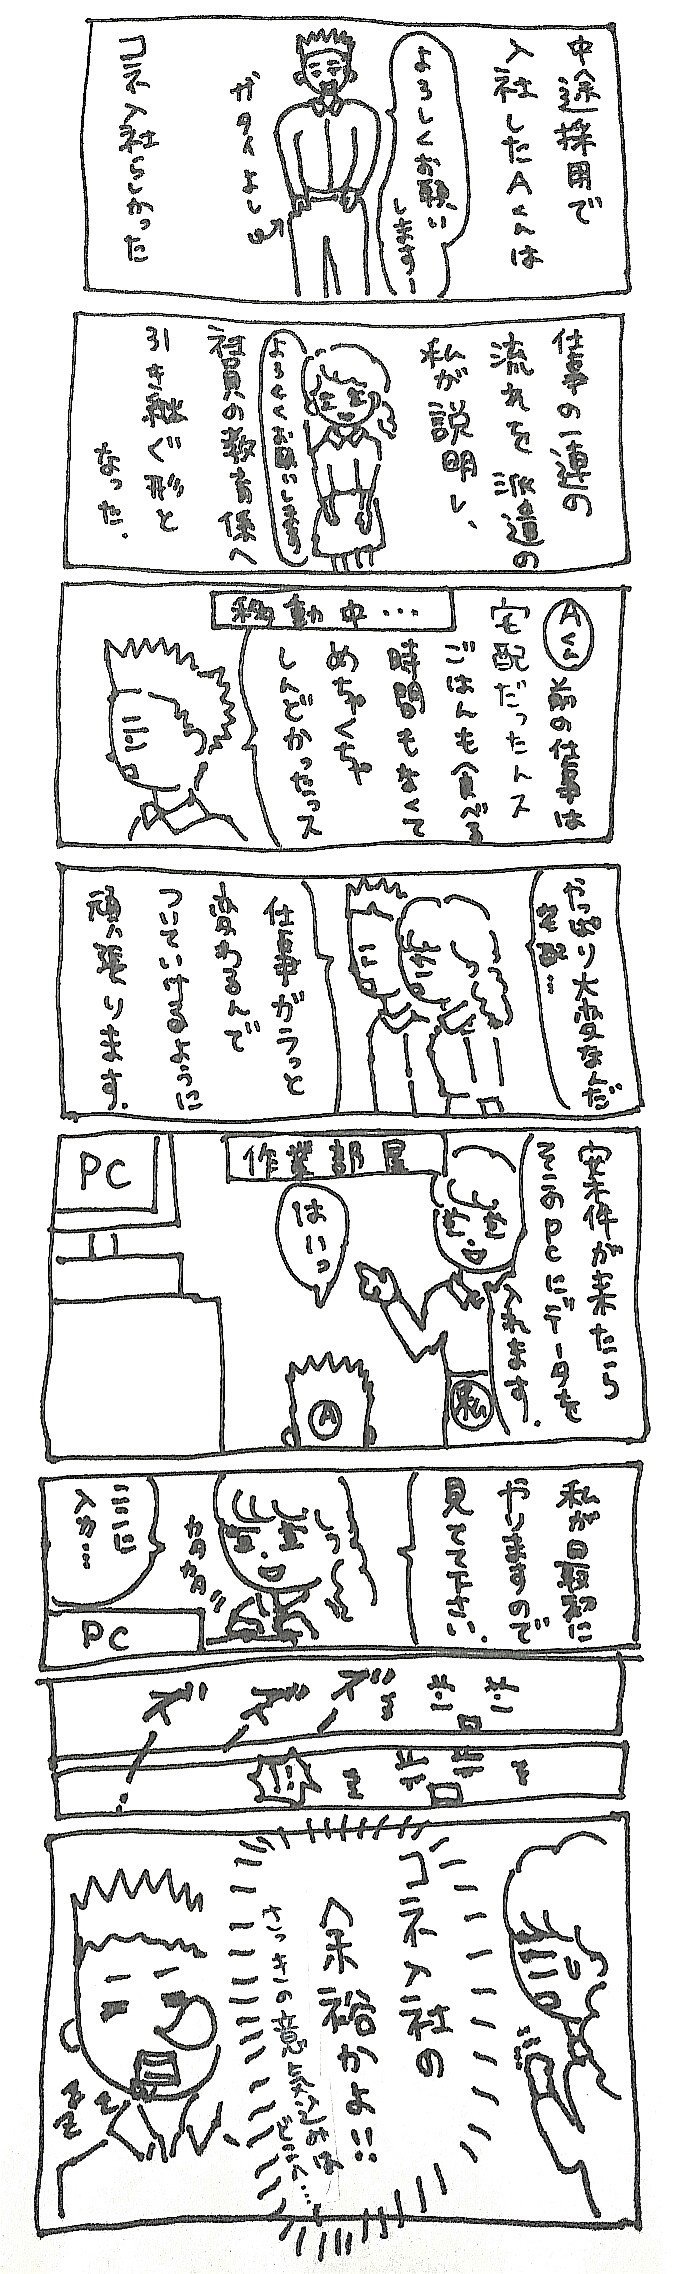 中途採用で
入社したAくんは
よろしくお願い
します!
ガタイよし
コネ入社らしかった
仕事の一連の
流れを派遣の
私が説明し、
よろしくお願いします
社員の教育係へ
引き継ぐ形と
なった.
移動中…
Aくん
前の仕事は
宅配だったんス
ごはんも食べる
時間もなくて
めちゃくちゃ
しんどかったっス
やっぱり大変なんだ
宅配…
仕事がラっと
変わるんで
ついていけるように
頑張ります.
作業部屋
案件が来たら
そのPCにデータを
入れます.
はいっ
PC
A
私
私が最初に
やりますので
見てて下さい.
カタカタ
ここに
入力…
PC
ズ
ズ
ズ
コネ入社の
余裕かよ!!
さっきの意気込みは
どこへ…
zzz